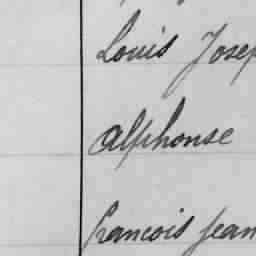 Louis Josep
Alphonse
francois Jean